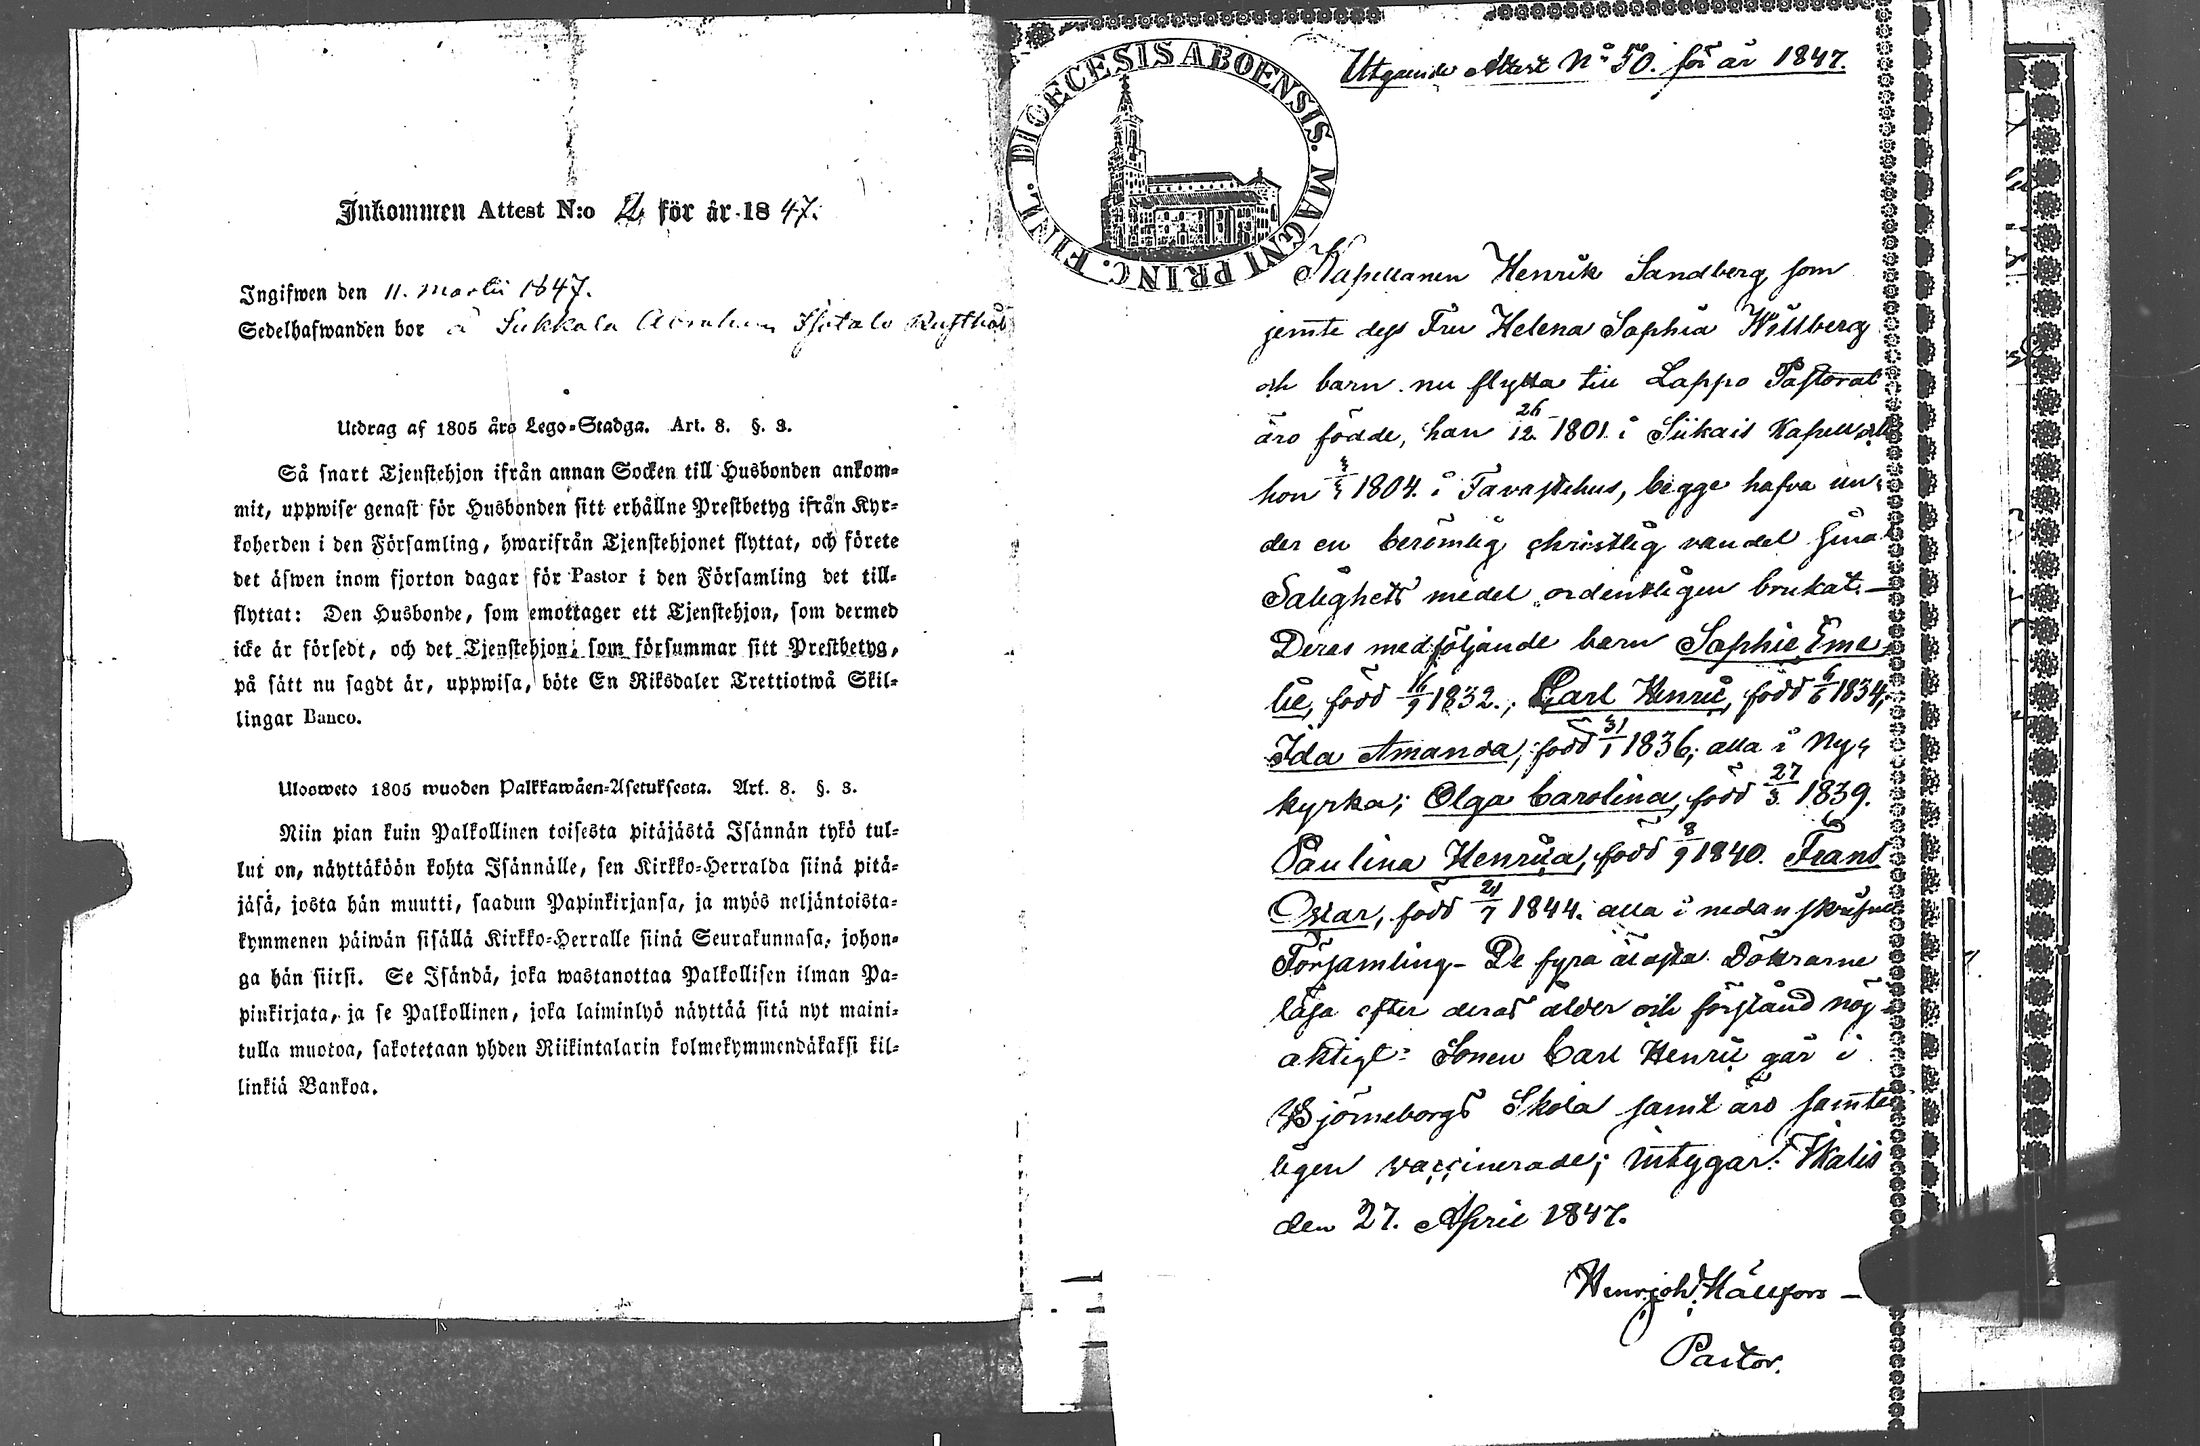 Inkommen Attest N:o 2 för år 1847.
Ingifwen den 11. Martii 1847.
Sedelhafwanden bor å Sukkala Abraham
Utdrag af 1805 års Lego-Stadga. Art. 8. §. 3.
Så snart Tjenstehjon ifrån annan Socken till Husbonden ankom-
mit, uppwise genast för Husbonden sitt erhållne Prestbetyg ifrån Kyr-
koherden i den Församling, hwarifrån Tjenstehjonet flyttat, och förete
det äfwen inom fjorton dagar för Pastor i den Församling det till-
flyttat: Den Husbonde, som emottager ett Tjenstehjon, som dermed
icke är försedt, och det Tjenstehjon, som försummar sitt Prestbetyg,
på sätt nu sagdt är, uppwisa, böte En Riksdaler Trettiotwå Skil-
lingar Banco.
Ulosweto 1805 wuoden Palkkawäen-Asetuksesta. Art. 8. §. 3.
Niin pian kuin Palkollinen toisesta pitäjästä Isännän tykö tul-
lut on, näyttäköön kohta Isännälle, sen Kirkko-Herralda siinä pitä-
jäsä, josta hän muutti, saadun Papinkirjansa, ja myös neljäntoista-
kymmenen päiwän sisällä Kirkko-Herralle siinä Seurakunnasa, johon-
ga hän siirsi. Se Isändä, joka wastanottaa Palkollisen ilman Pa-
pinkirjata, ja se Palkollinen, joka laiminlyö näyttää sitä nyt maini-
tulla muotoa, sakotetaan yhden Riikintalarin kolmekymmendäkaksi kil-
linkiä Bankoa.
DIOECESIS ABOENSIS. MAGNI PRINC. FINL.
Utgående Attest No 50. för år 1847.
Kapellanen Henrik Sandberg som
jemte dess Fru Helena Sophia Willberg
och barn nu flytta till Lappo Pastorat
äro födde, han 26/12 1801 i Siikais Kapell
hon 1804. i Tavastehus, begge hafva un-
der en berömlig christlig vandel sina
Salighets medel ordentligen brukat.—
Deras medföljande barn Sophie Eme-
lie, född 16/9 1832.; Carl Henric, född 6/6 1834;
Ida Amanda, född 31/1 1836; alla i Ny-
kyrka; Olga Carolina, född 27/3 1839.
Paulina Henrica, född 8/9 1840. Frans
Oscar, född 21/7 1844. alla i nedanskrifne
Församling- De fyra äldsta Döttrarne
läsa efter deras ålder och förstånd nöj-
aktigt: Sonen Carl Henric går i
Björneborgs Skola samt äro samte-
ligen vaccinerade; intygar. Ikalis
den 27. April 1847.
Henr. Joh. Hällfors —
Pastor.